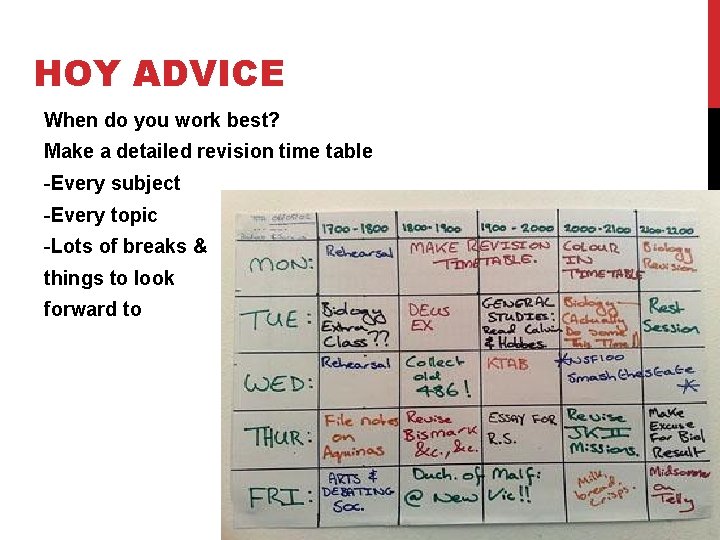 HOY ADVICE
When do you work best?
Make a detailed revision time table
-Every subject
-Every topic
-Lots of breaks &
things to look
forward to
1700-1800 1800-1900 1900-2000 2000-2100 2100-2200
MON:
Rehearsal
MAKE REVISION
TIMETABLE.
COLOUR
IN
TIMETABLE
Biology
Revision
TUE:
Biology
Extra
Class??
DEUS
EX
GENERAL
STUDIES:
Read Calvin
& Hobbes
Biology
(Actually
Do Some
This Time!)
Rest
Session
WED:
Rehearsal
Collect
old
486!
KTAB
*NSF100
Smash Chase
*
THUR:
File notes
on
Aquinas
Revise
Bismark
&c., &c.
ESSAY FOR
R.S.
Revise
JKII
Missions.
Make
Excuse
For Biol
Result
FRI:
ARTS &
DEBATING
SOC.
Duch. of Malf:
@ New Vic!!
Milk,
bread,
crisps.
Midsomer
on
Telly